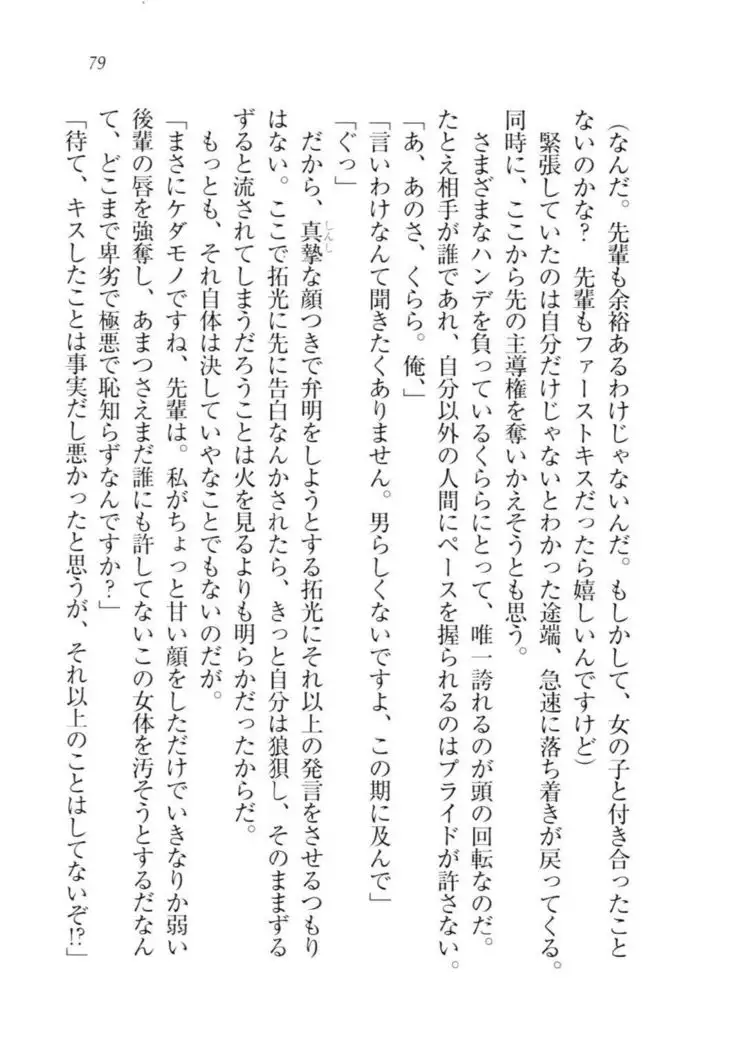 79
(なんだ。先輩も余裕あるわけじゃないんだ。もしかして、女の子と付き合ったこと
ないのかな?　先輩もファーストキスだったら嬉しいんですけど)
　緊張していたのは自分だけじゃないとわかった途端、急速に落ち着きが戻ってくる。
同時に、ここから先の主導権を奪いかえそうとも思う。
　さまざまなハンデを負っているくららにとって、唯一誇れるのが頭の回転なのだ。
たとえ相手が誰であれ、自分以外の人間にペースを握られるのはプライドが許さない。
「あ、あのさ、くらら。俺、」
「言いわけなんて聞きたくありません。男らしくないですよ、この期に及んで」
「ぐっ」
　だから、真摯な顔つきで弁明をしようとする拓光にそれ以上の発言をさせるつもり
しんし
はない。ここで拓光に先に告白なんかされたら、きっと自分は狼狽し、そのままずる
ずると流されてしまうだろうことは火を見るよりも明らかだったからだ。
　もっとも、それ自体は決していやなことでもないのだが。
「まさにケダモノですね、先輩は。私がちょっと甘い顔をしただけでいきなりか弱い
後輩の唇を強奪し、あまつさえまだ誰にも許してないこの女体を汚そうとするだなん
て、どこまで卑劣で極悪で恥知らずなんですか?」
「待て、キスしたことは事実だし悪かったと思うが、それ以上のことはしてないぞ!?」